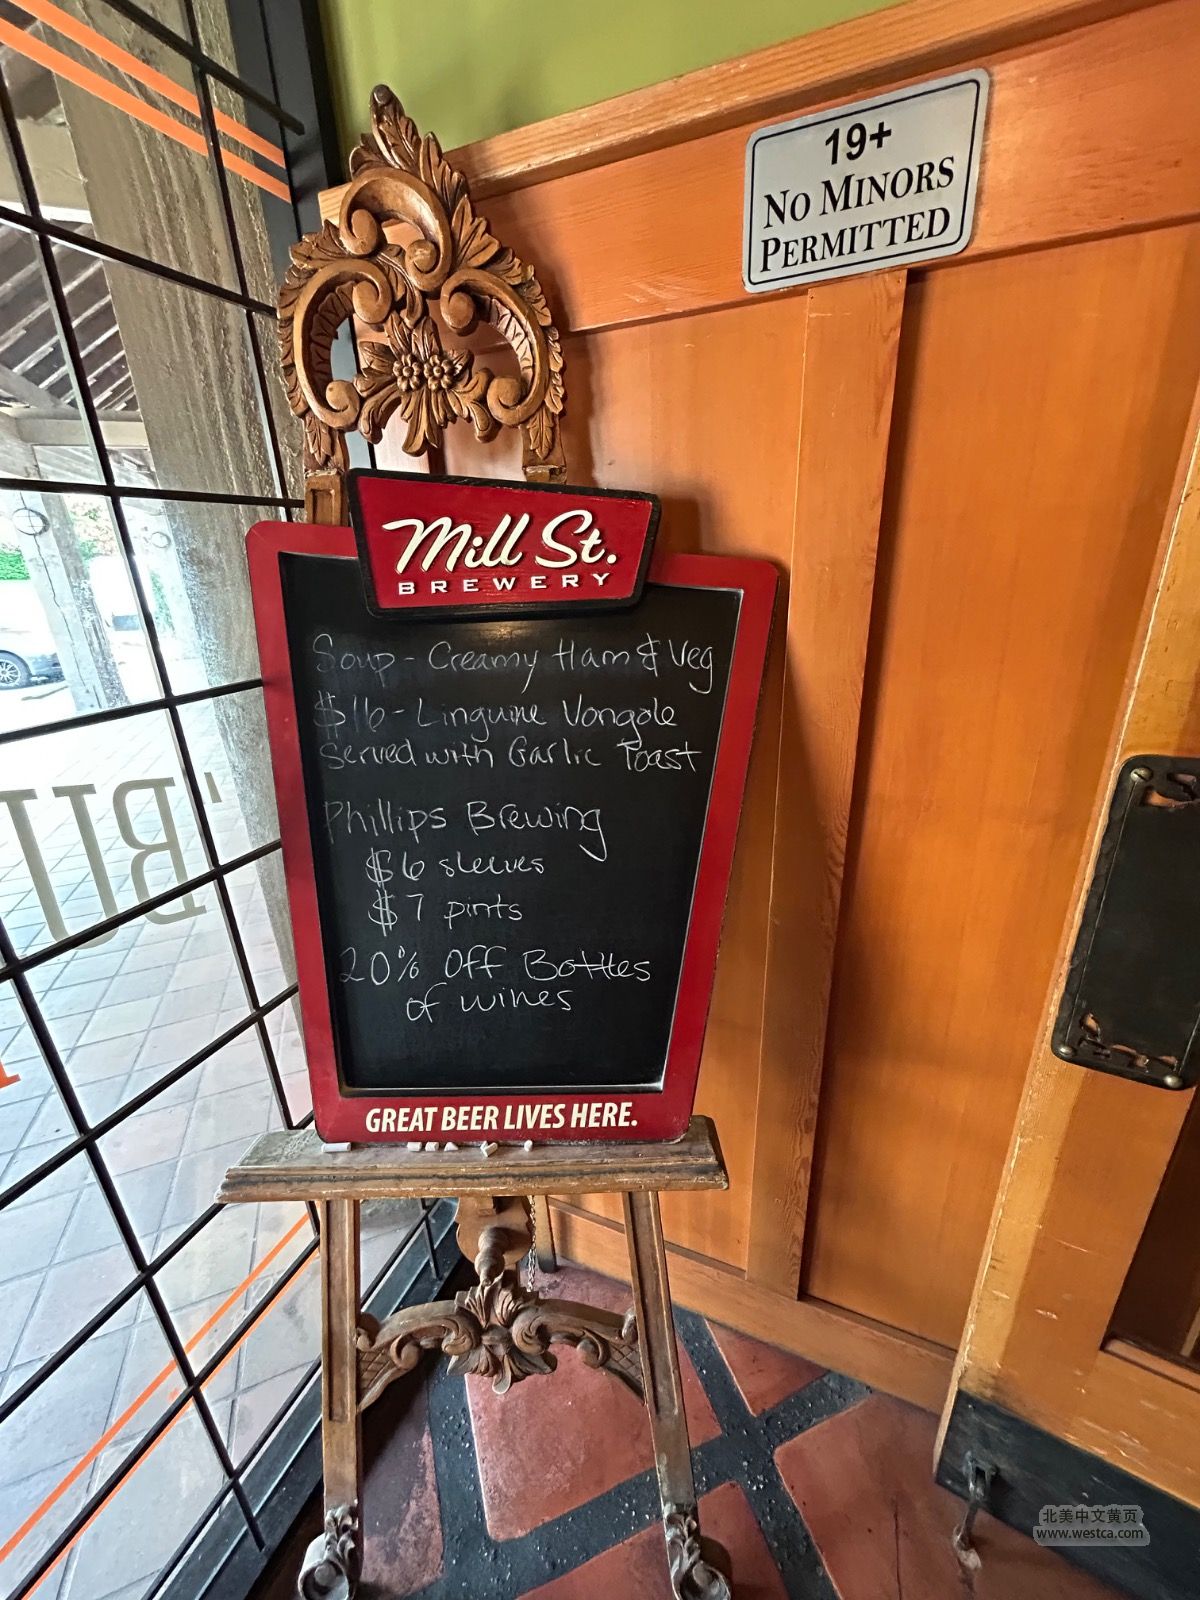 19+
NO MINORS
PERMITTED
Mill St.
BREWERY
Soup - Creamy Ham & Veg
$16 - Linguine Vongole
Served with Garlic Toast
Phillips Brewing
$6 sleeves
$7 pints
20% Off Bottles
of wines
GREAT BEER LIVES HERE.
北美中文黄页
www.westca.com